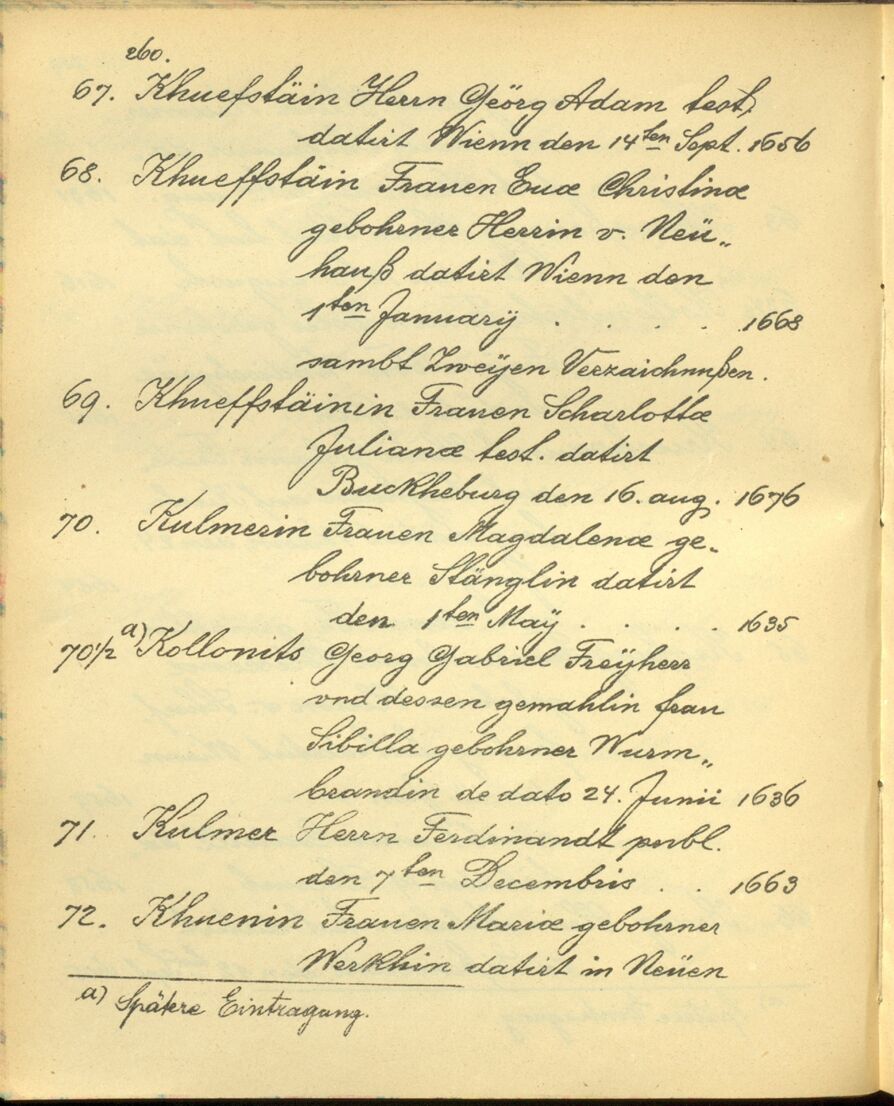 260.
67. Khuefstäin Herrn Geörg Adam test.
datirt Wienn den 14ten Sept. 1656
68. Khueffstäin Frauen Euæ Christinæ
gebohrner Herrin v. Neü„
hauß datirt Wienn den
1ten Januarÿ . . . . 1668
sambt Zweÿen Verzaichnußen.
69. Khueffstäinin Frauen Scharlottæ
Julianæ test. datirt
Buckheburg den 16. aug. 1676
70. Kulmerin Frauen Magdalenæ ge„
bohrner Stänglin datirt
den 1ten Maÿ . . . . 1635
70 1/2 a) Kollonits Georg Gabriel Freÿherr
vnd dessen gemahlin frau
Sibilla gebohrner Wurm„
brandin de dato 24. Junii 1636
71. Kulmer Herrn Ferdinandt publ.
den 7ten Decembris . . 1663
72. Khuenin Frauen Mariæ gebohrner
Werkhin datirt in Neüen
a) Spätere Eintragung.